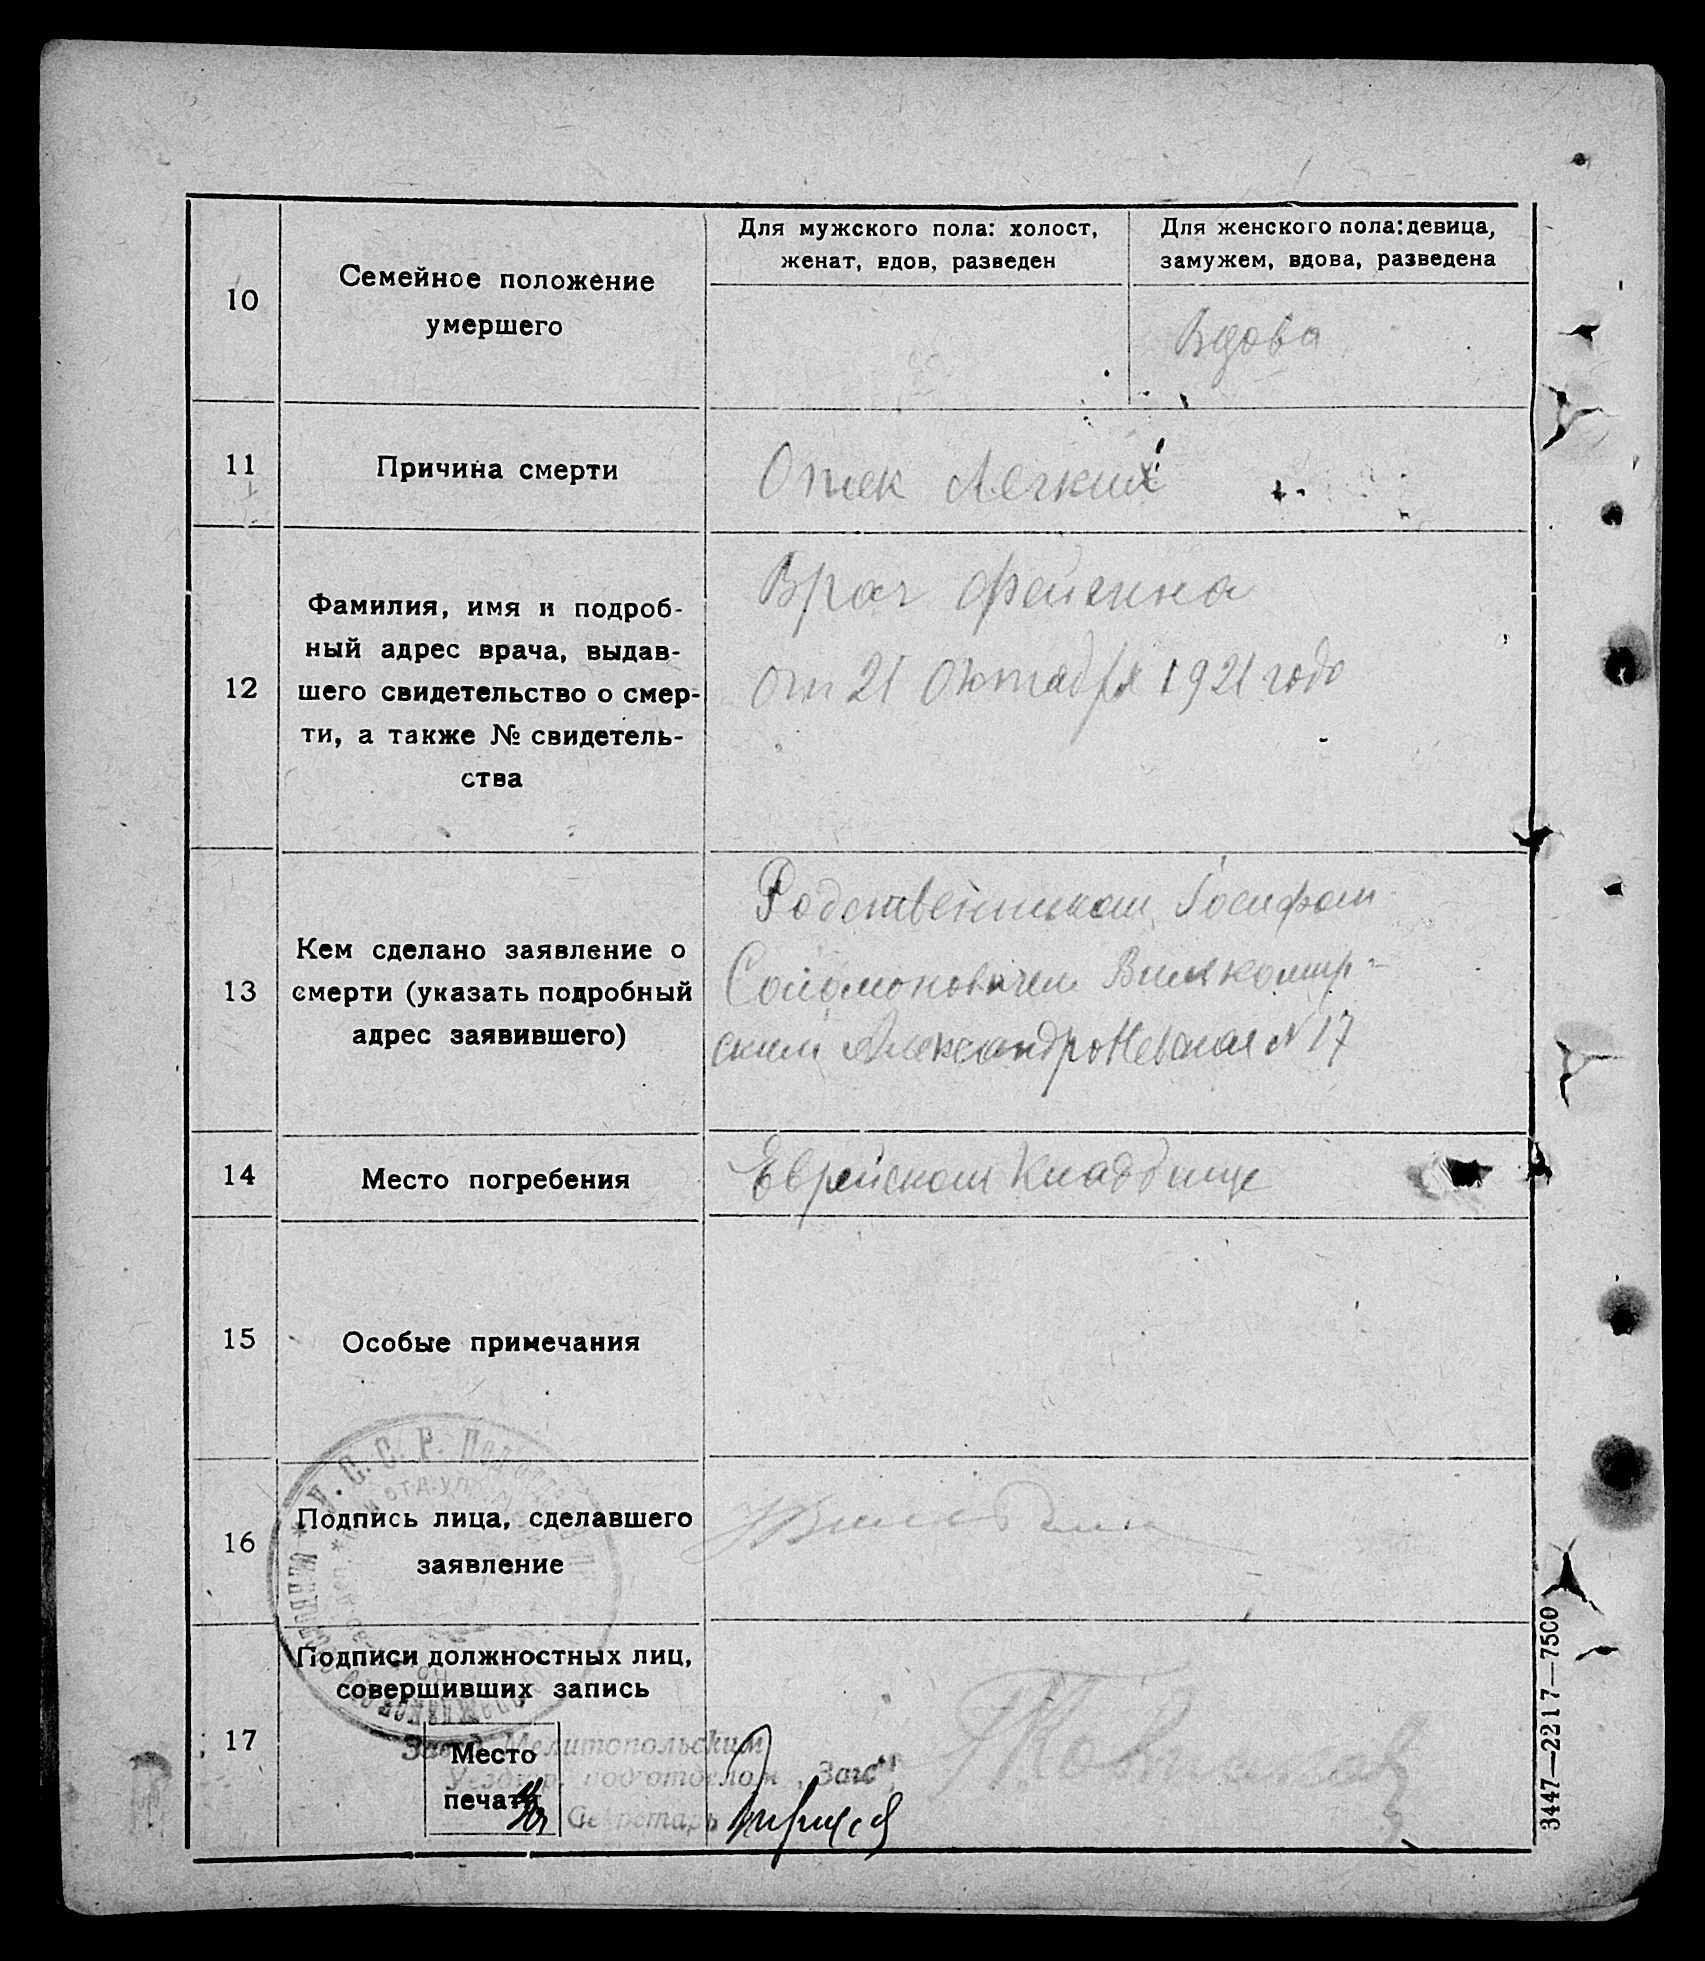 10
Семейное положение
умершего
Для мужского пола: холост,
женат, вдов, разведен
Для женского пола: девица,
замужем, вдова, разведена
Вдова
11
Причина смерти
Отек Легких
12
Фамилия, имя и подроб-
ный адрес врача, выдав-
шего свидетельство о смер-
ти, а также № свидетель-
ства
Врач Фейгина
от 21 Октября 1921 года
13
Кем сделано заявление о
смерти (указать подробный
адрес заявившего)
Родственником Iосифом
Соломоновичем Вилькомир-
ским АлександроНевская № 17
14
Место погребения
Еврейском Кладбище
15
Особые примечания
16
Подпись лица, сделавшего
заявление
17
Подписи должностных лиц,
совершивших запись
Место
печати
Завед. Мелитопольским
Уездгор. подотделом „Загс“
Секретарь
3447—2217—7500